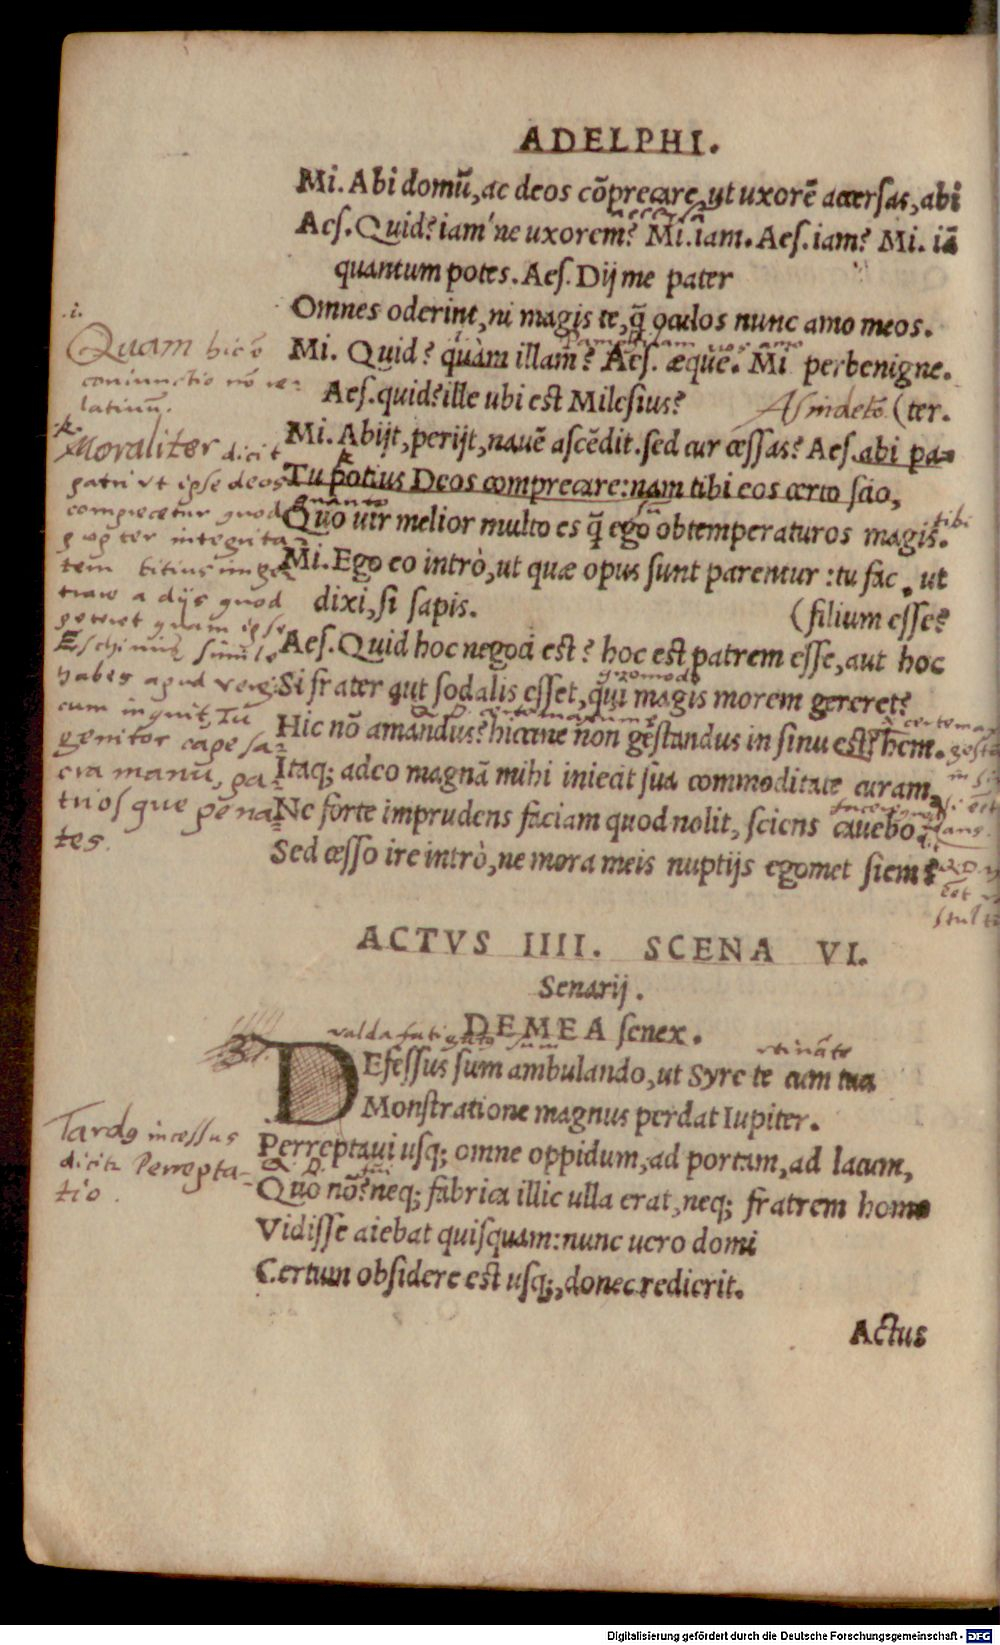 ADELPHI.
Mi. Abi domū, ac deos cōprecare, ut uxorē accersas, abi
Aes. Quid? iam'ne uxorem? Mi. iam. Aes. iam? Mi. iā
quantum potes. Aes. Dij me pater
Omnes oderint, ni magis te, q̄ oculos nunc amo meos.
Mi. Quid? quàm illam? Aes. æque. Mi perbenigne.
Aes. quid? ille ubi est Milesius?
Asindetō (ter.
Mi. Abijt, perijt, nauē ascēdit. sed cur cessas? Aes. abi pa-
Tu potius Deos comprecare: nam tibi eos certo scio,
quanto
Quo uir melior multo es q̄ ego obtemperaturos magis.
tibi
Mi. Ego eo intrò, ut quæ opus sunt parentur: tu fac, ut
dixi, si sapis. (filium esse?
Aes. Quid hoc negoci est? hoc est patrem esse, aut hoc
quomodo
Si frater aut sodalis esset, qui magis morem gereret?
Hic nō amandus? hiccine non gestandus in sinu est? hem.
Itaq; adeo magnā mihi iniecit sua commoditate curam,
Ne forte imprudens faciam quod nolit, sciens cauebo.
Sed cesso ire intrò, ne mora meis nuptijs egomet siem?
.i.
Quam hic ō
coniunctio nō re-
latiuū.
.k.
Moraliter dicit
patri ut ipse deos
comprecetur quod
propter integrita-
tem citius impe-
trare a dijs quod
peteret quam ipse
Eschinus simile
habes apud Vergi.
cum inquit, Tu
genitor cape sa-
cra manu, pa-
triosque pena-
tes.
ACTVS IIII. SCENA VI.
Senarij.
DEMEA senex.
valde fatigatus sum
DEfessus sum ambulando, ut Syre te cum tua
Monstratione magnus perdat Iupiter.
Perreptaui usq; omne oppidum, ad portam, ad lacum,
Quo nō? neq; fabrica illic ulla erat, neq; fratrem homo
Vidisse aiebat quisquam: nunc uero domi
Certum obsidere est usq;, donec redierit.
Tardo incessus
dicitur Perrepta-
tio.
Actus
Digitalisierung gefördert durch die Deutsche Forschungsgemeinschaft - DFG